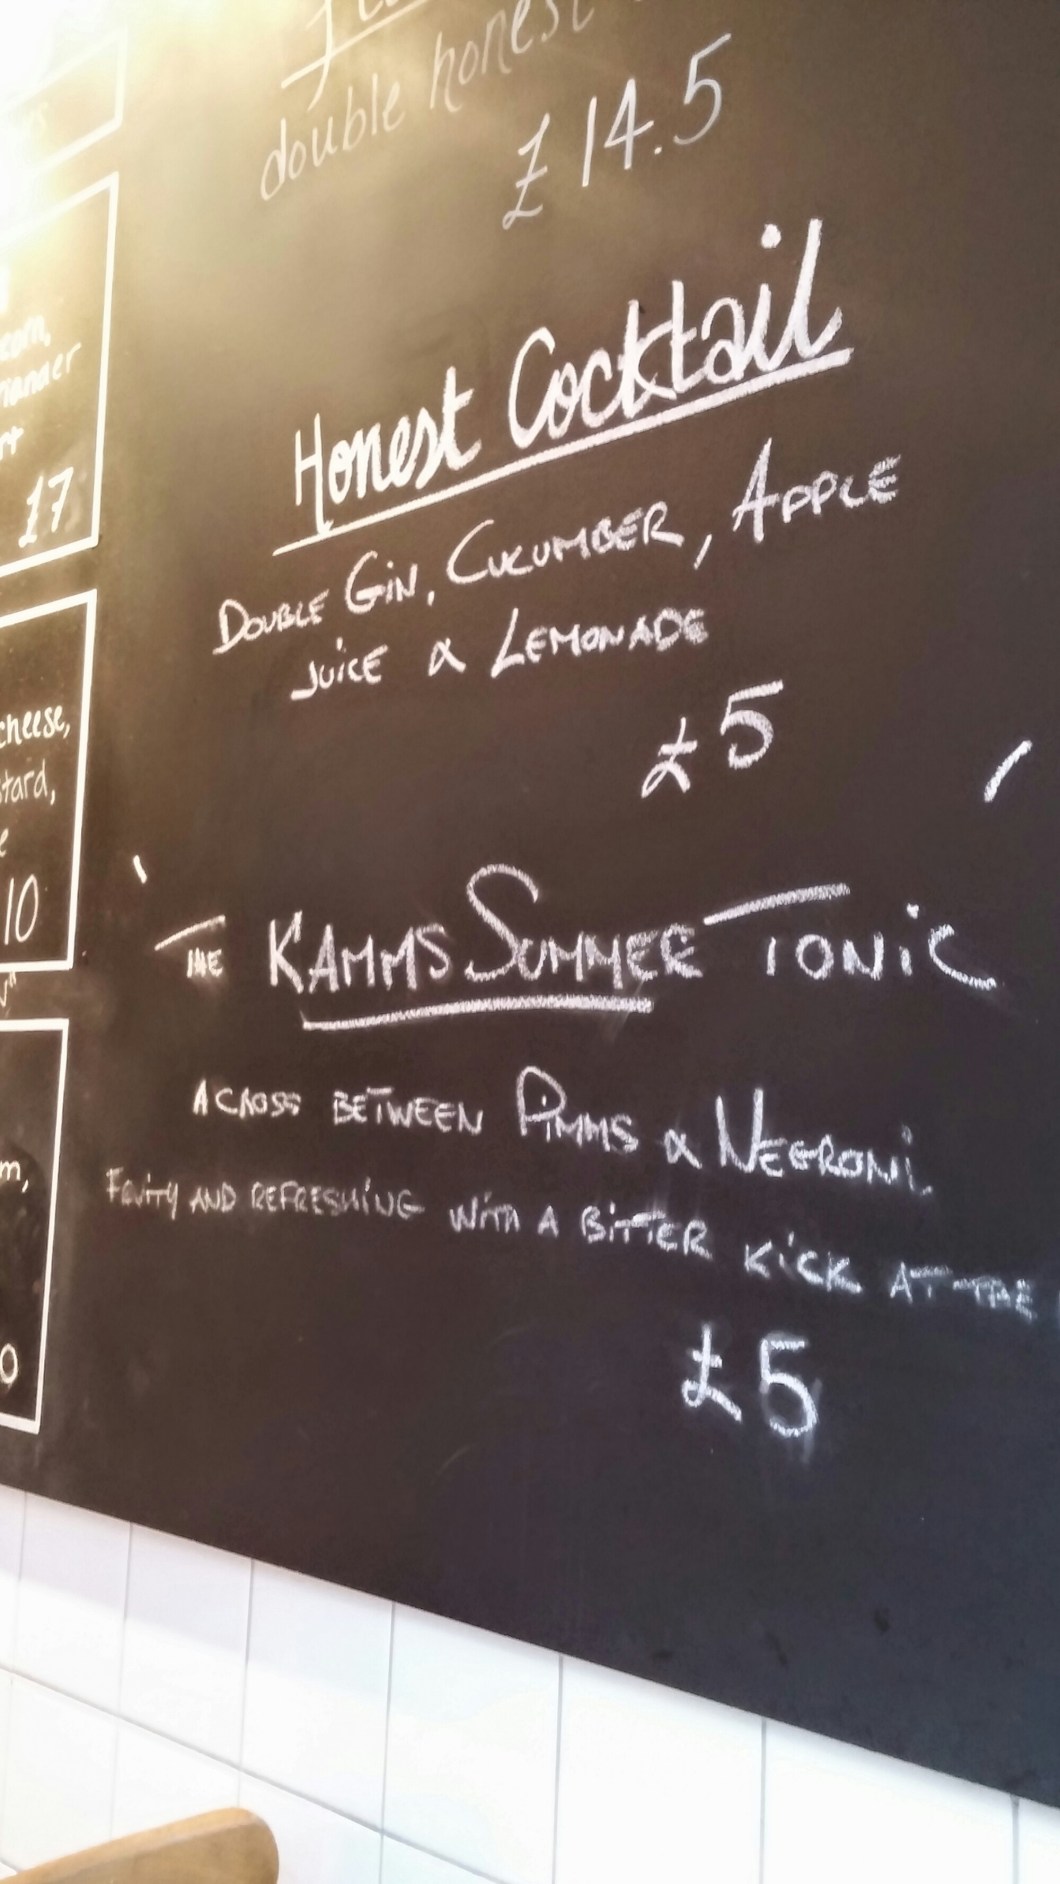 double honest
£14.5
Honest Cocktail
DOUBLE GiN, CUCUMBER, APPLE
JUiCE & LEMONADE
£5
THE KAMMS SUMMER TONiC
A CROSS BETWEEN PiMMS & NEGRONi
FRUiTY AND REFRESHiNG WiTH A BiTTER KiCK AT THE
£5
£7
cheese,
10